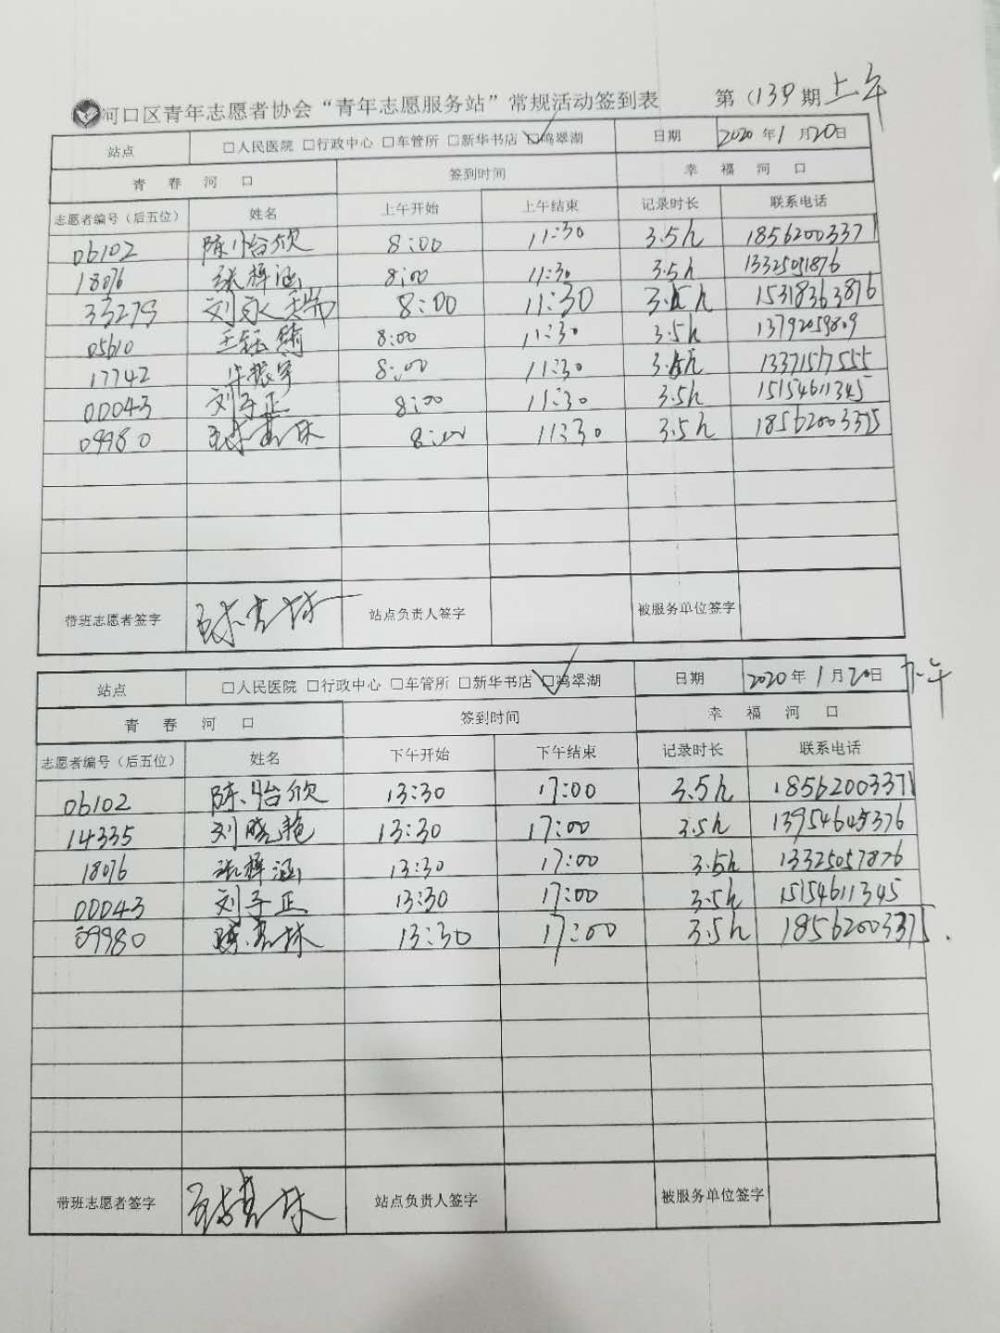 河口区青年志愿者协会“青年志愿服务站”常规活动签到表 第(139期 上午
站点 □人民医院 □行政中心 □车管所 □新华书店 □鸣翠湖 日期 2020年1月20日
青春河口 签到时间 幸福河口
志愿者编号(后五位) 姓名 上午开始 上午结束 记录时长 联系电话
06102 陈怡欣 8:00 11:30 3.5h 18562003371
18076 张梓涵 8:00 11:30 3.5h
33279 刘永瑞 8:00 11:30 3.5h 15318363876
05610 王钰 8:00 11:30 3.5h 13792059809
17742 振宇 8:00 11:30 3.5h 13371571555
00043 刘子正 8:00 11:30 3.5h 15154611345
09980 8:00 11:30 3.5h 18562003375
带班志愿者签字 站点负责人签字 被服务单位签字
站点 □人民医院 □行政中心 □车管所 □新华书店 □鸣翠湖 日期 2020年1月20日 下午
青春河口 签到时间 幸福河口
志愿者编号(后五位) 姓名 下午开始 下午结束 记录时长 联系电话
06102 陈怡欣 13:30 17:00 3.5h 18562003371
14335 刘晓艳 13:30 17:00 3.5h 13954645376
18076 张梓涵 13:30 17:00 3.5h
00043 刘子正 13:30 17:00 3.5h 15154611345
09980 13:30 17:00 3.5h 18562003375
带班志愿者签字 站点负责人签字 被服务单位签字